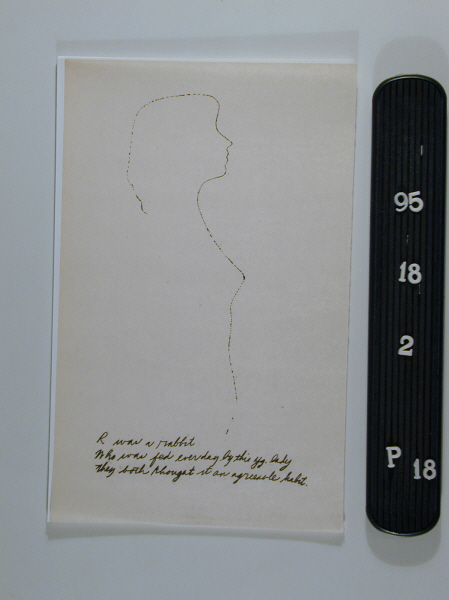 R was a rabbit
Who was fed everday by the yg. lady
They both thought it an agreeable habit.
95
18
2
P 18